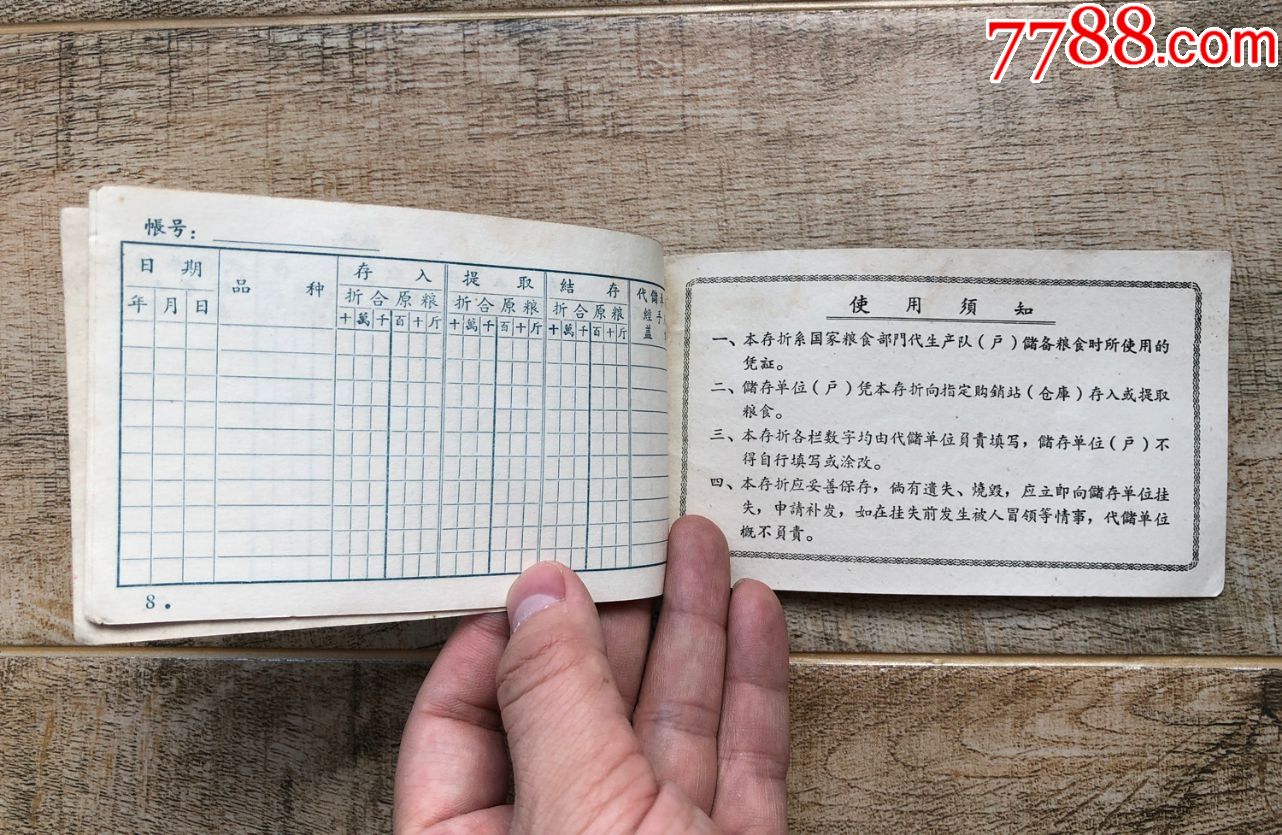 7788.com
帳号：
日 期 品 种 存 入 提 取 結 存 代儲
年 月 日 折合原粮 折合原粮 折合原粮 經手
十 萬 千 百 十 斤 十 萬 千 百 十 斤 十 萬 千 百 十 斤 盖
8.
使用須知
一、本存折系国家粮食部門代生产队（戶）儲备粮食时所使用的
凭証。
二、儲存单位（戶）凭本存折向指定购銷站（仓庫）存入或提取
粮食。
三、本存折各栏数字均由代儲单位負責填写，儲存单位（戶）不
得自行填写或涂改。
四、本存折应妥善保存，倘有遺失、燒毀，应立即向儲存单位挂
失，申請补发，如在挂失前发生被人冒领等情事，代儲单位
概不負責。